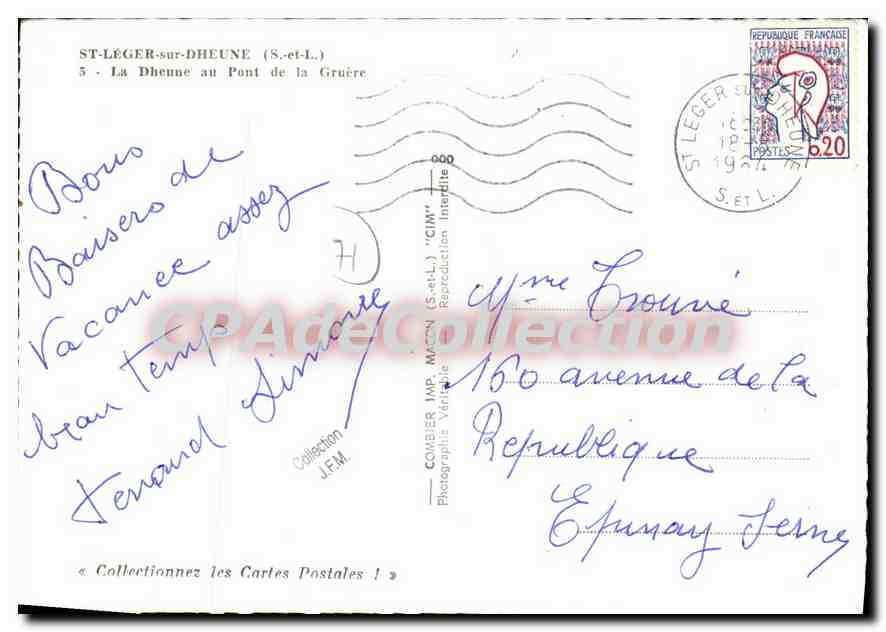 ST-LÉGER-sur-DHEUNE (S.-et-L.)
5 - La Dheune au Pont de la Gruère
REPUBLIQUE FRANÇAISE
POSTES 0,20
ST LEGER SUR DHEUNE
18
1964
S. ET L.
Bons
Baisers de
Vacance assez
beau Temp
Fernand Simone
71
Collection
J.F.M.
« Collectionnez les Cartes Postales ! »
COMBIER IMP. MACON (S.-et-L.) "CIM"
Photographie Véritable - Reproduction Interdite
Mme Trouvé
160 avenue de la
Republique
Epinay Seine
CPAdeCollection